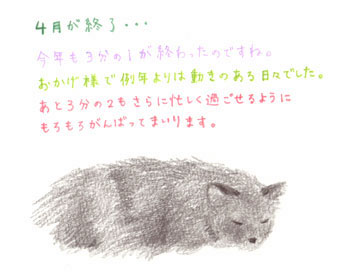 4月が終了・・・
今年も3分の1が終わったのですね。
おかげ様で例年よりは動きのある日々でした。
あと3分の2もさらに忙しく過ごせるように
もろもろがんばってまいります。